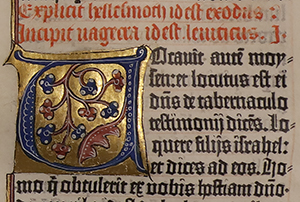 Explicit hellesmoth id est exodus.
Incipit vagecra id est leuiticus. I.
Vocauit autē moy-
sen: et locutus est ei
dn̄s de tabernaculo
testimonij dicēs. Lo-
quere filijs israhel:
et dices ad eos. Ho-
mo q̄ obtulerit ex vobis hostiam dn̄o·